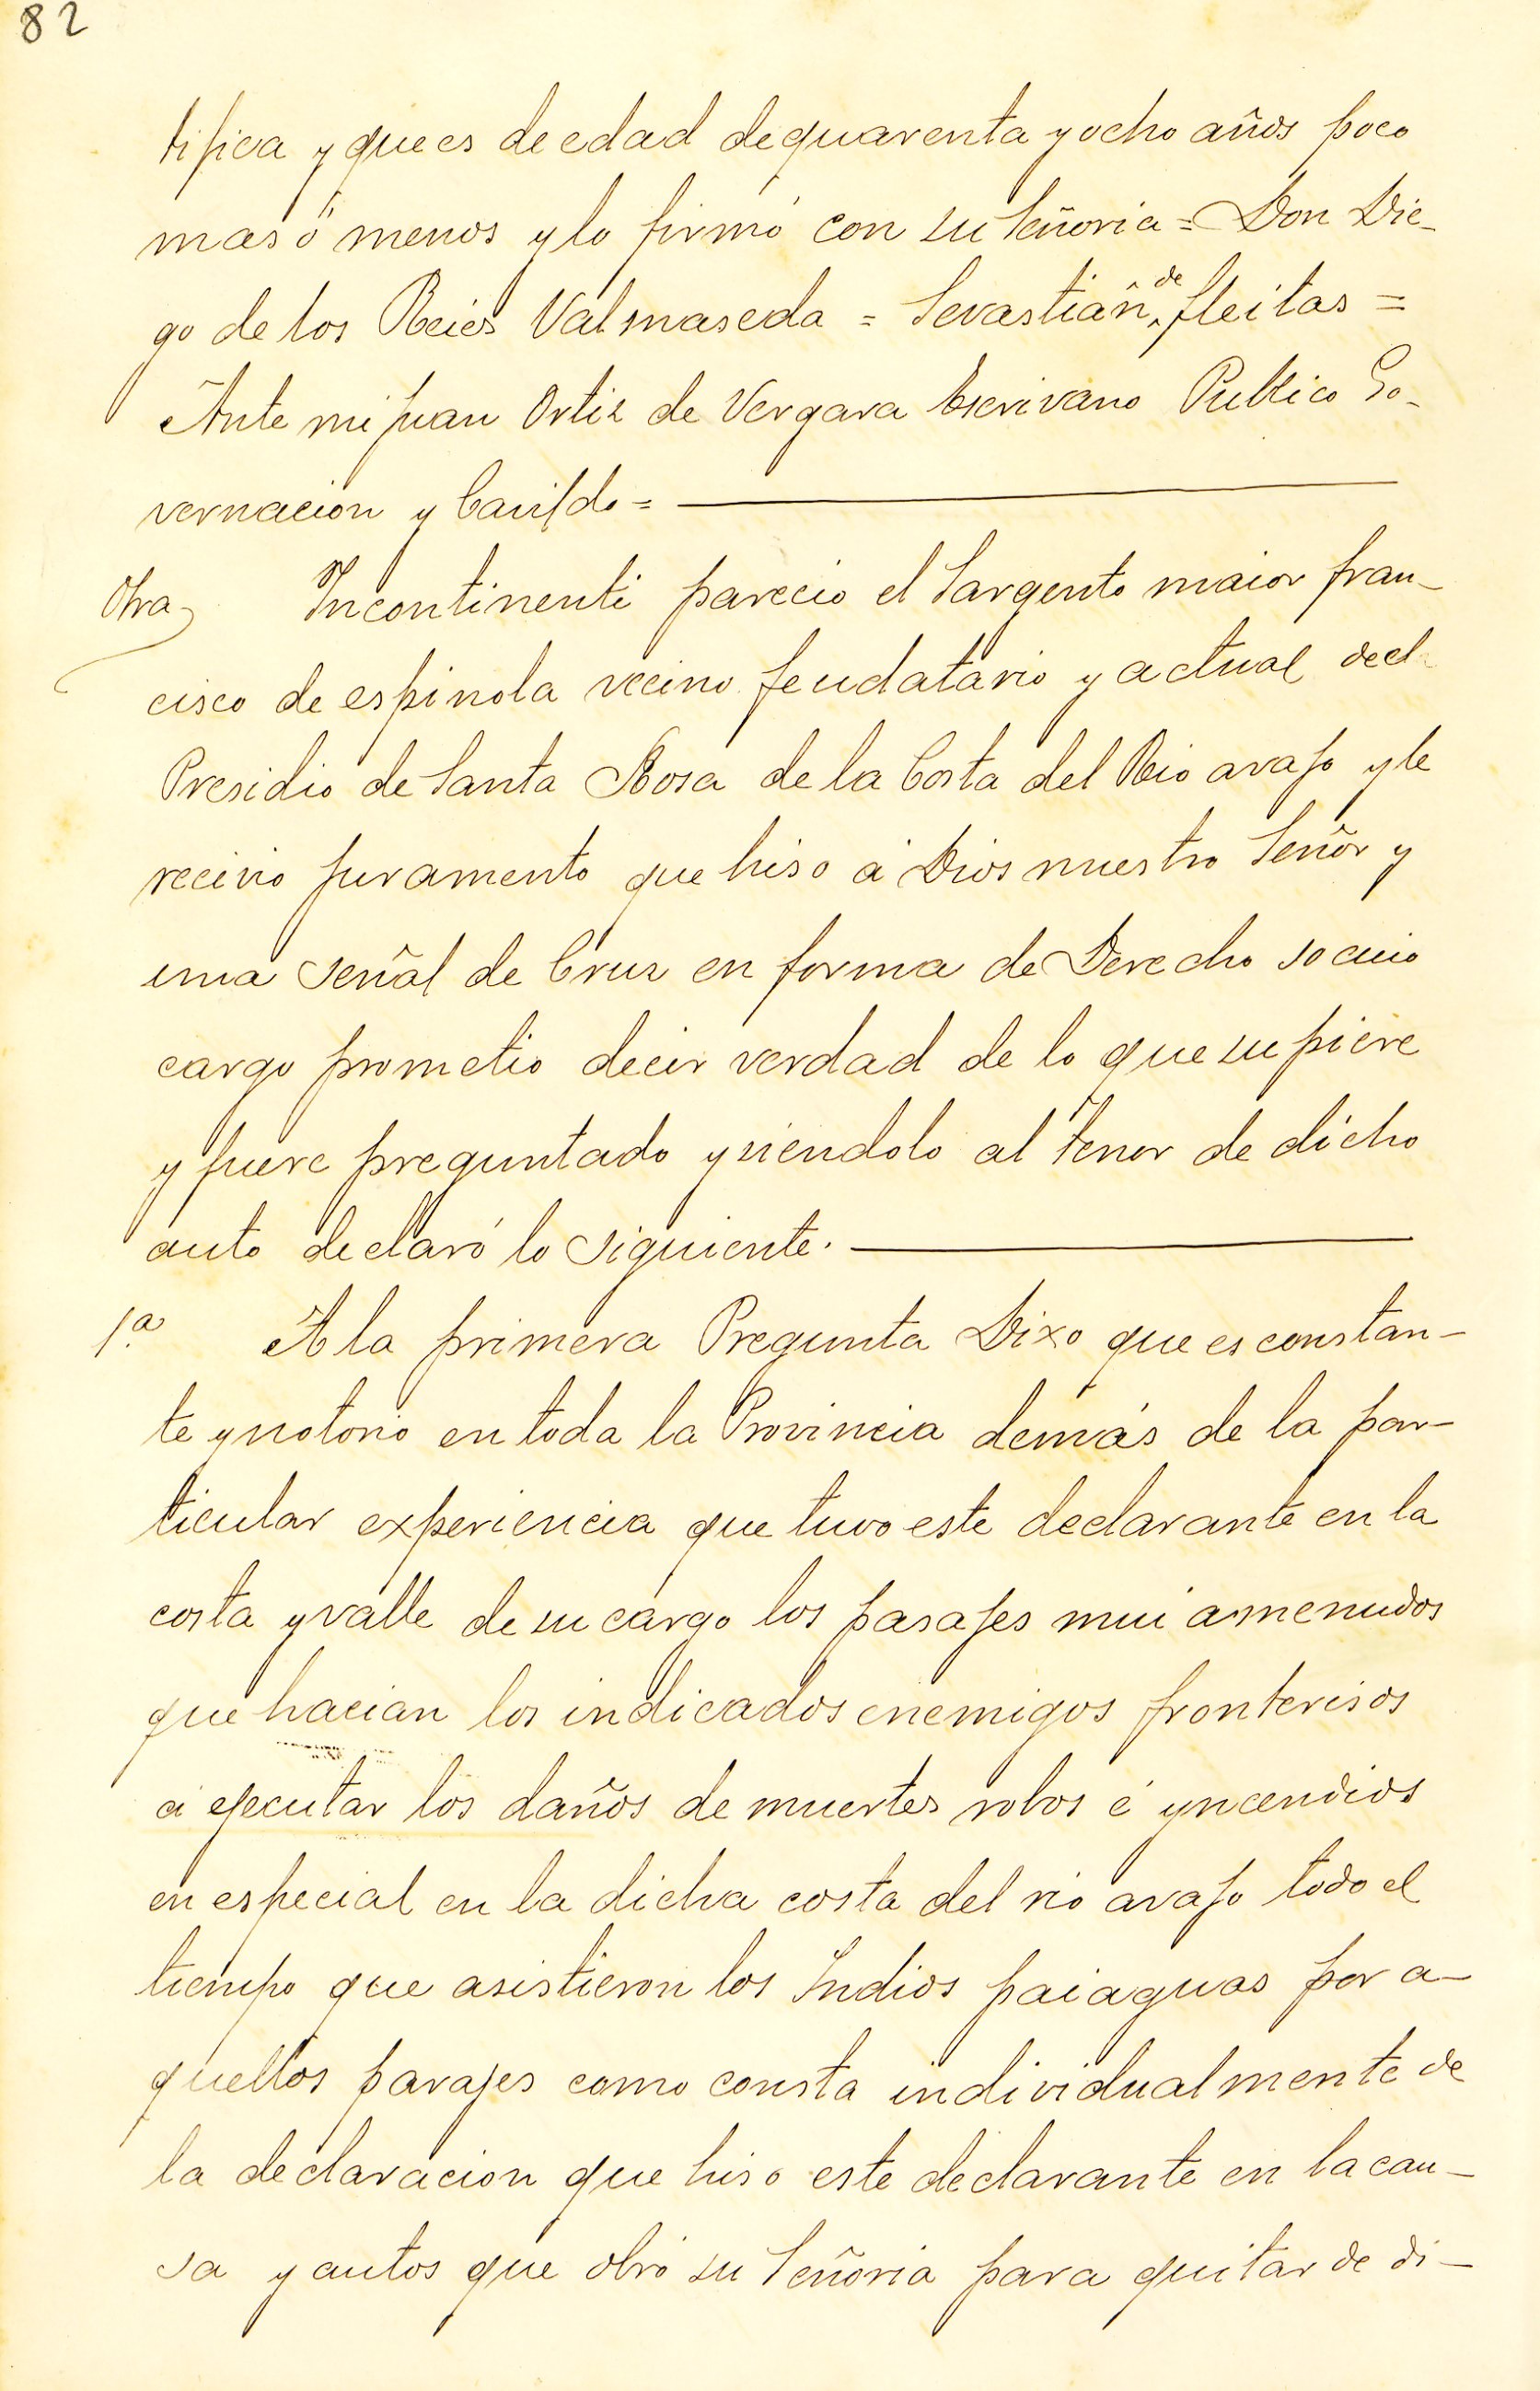 82
tifica y que es de edad de quarenta y ocho años poco
mas ó menos y lo firmó con su Señoria = Don Die-
go de los Reies Valmaseda = Sevastián de fleitas =
Ante mi Juan Ortiz de Vergara Escrivano Publico Go-
vernacion y Cavildo =
Otra Incontinenti parecio el Sargento maior fran-
cisco de espinola vecino feudatario y actual del
Presidio de Santa Rosa de la Costa del Rio avajo y le
recivio juramento que hiso á Dios nuestro Señor y
una señal de Cruz en forma de Derecho so cuio
cargo prometio decir verdad de lo que supiere
y fuere preguntado y siendolo al tenor de dicho
auto declaró lo siguiente.
1.a A la primera Pregunta Dixo que es constan-
te y notorio en toda la Provincia demás de la par-
ticular experiencia que tuvo este declarante en la
costa y valle de su cargo los pasajes mui amenudos
que hacian los indicados enemigos fronterisos
á ejecutar los daños de muertes robos é yncendios
en especial en la dicha costa del rio avajo todo el
tiempo que asistieron los Indios paiaguas por a-
quellos parajes como consta individualmente de
la declaracion que hiso este declarante en la cau-
sa y autos que obró su Señoria para quitar de di-